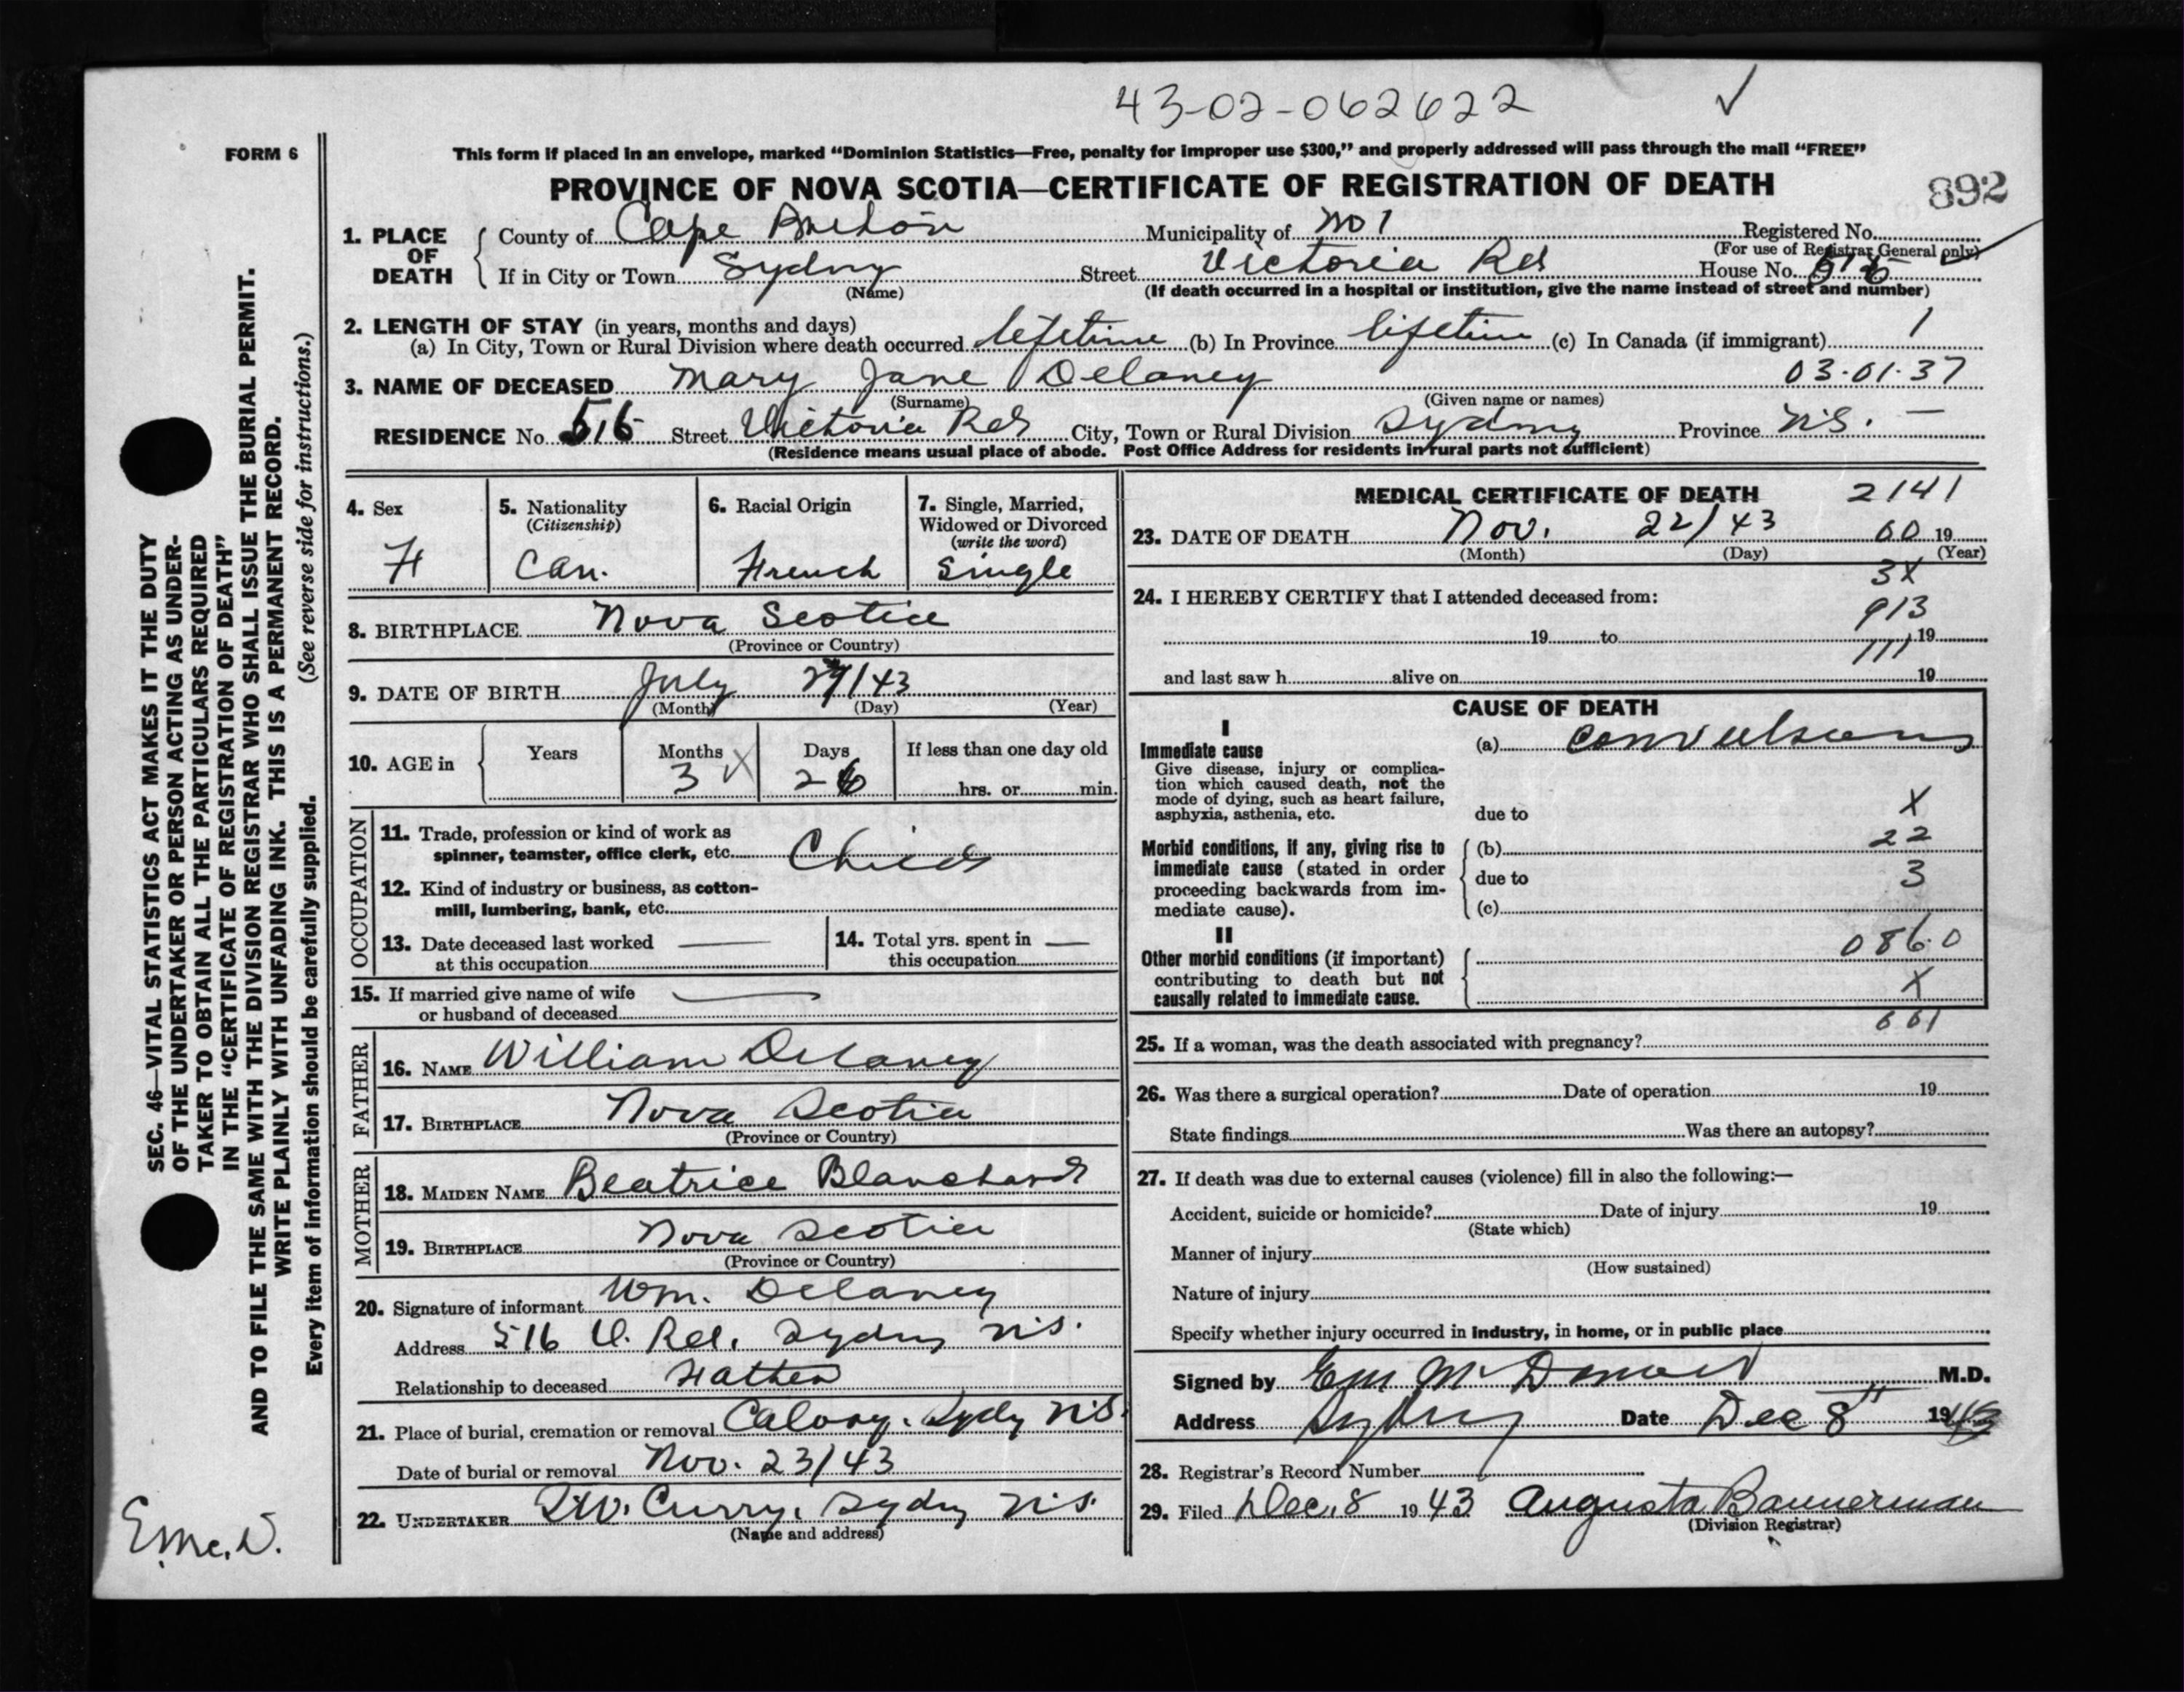 43-02-062622 ✓
FORM 6
This form if placed in an envelope, marked "Dominion Statistics—Free, penalty for improper use $300," and properly addressed will pass through the mail "FREE"
PROVINCE OF NOVA SCOTIA—CERTIFICATE OF REGISTRATION OF DEATH
892
1. PLACE OF DEATH { County of Cape Breton Municipality of No 1 Registered No.
(For use of Registrar General only)
If in City or Town Sydney Street Victoria Rd House No. 516
(Name) (If death occurred in a hospital or institution, give the name instead of street and number)
2. LENGTH OF STAY (in years, months and days)
(a) In City, Town or Rural Division where death occurred lifetime (b) In Province lifetime (c) In Canada (if immigrant) 1
3. NAME OF DECEASED Mary Jane Delaney 03·01·37
(Surname) (Given name or names)
RESIDENCE No. 516 Street Victoria Rd City, Town or Rural Division Sydney Province N.S. —
(Residence means usual place of abode. Post Office Address for residents in rural parts not sufficient)
4. Sex
F
5. Nationality
(Citizenship)
Can.
6. Racial Origin
French
7. Single, Married,
Widowed or Divorced
(write the word)
Single
8. BIRTHPLACE Nova Scotia
(Province or Country)
9. DATE OF BIRTH July /43
(Month) (Day) (Year)
10. AGE in { Years Months Days If less than one day old
3 X 26 hrs. or min.
OCCUPATION
11. Trade, profession or kind of work as
spinner, teamster, office clerk, etc. Child
12. Kind of industry or business, as cotton-
mill, lumbering, bank, etc.
13. Date deceased last worked —
at this occupation
14. Total yrs. spent in —
this occupation
15. If married give name of wife —
or husband of deceased
FATHER
16. NAME William Delaney
17. BIRTHPLACE Nova Scotia
(Province or Country)
MOTHER
18. MAIDEN NAME Beatrice Blanchard
19. BIRTHPLACE Nova Scotia
(Province or Country)
20. Signature of informant Wm. Delaney
Address 516 V. Rd. Sydney N.S.
Relationship to deceased Father
21. Place of burial, cremation or removal Calvary. Sydney N.S.
Date of burial or removal Nov. 23/43
22. UNDERTAKER Curry, Sydney N.S.
(Name and address)
MEDICAL CERTIFICATE OF DEATH 2141
23. DATE OF DEATH Nov. 22/43 60 19
(Month) (Day) (Year)
3X
24. I HEREBY CERTIFY that I attended deceased from:
913
19 to 19
111
and last saw h alive on 19
CAUSE OF DEATH
I
Immediate cause
Give disease, injury or complica-
tion which caused death, not the
mode of dying, such as heart failure,
asphyxia, asthenia, etc.
(a) Convulsions
due to X
Morbid conditions, if any, giving rise to
immediate cause (stated in order
proceeding backwards from im-
mediate cause).
(b) 22
due to 3
(c)
II
Other morbid conditions (if important)
contributing to death but not
causally related to immediate cause.
086.0
X
661
25. If a woman, was the death associated with pregnancy?
26. Was there a surgical operation? Date of operation 19
State findings Was there an autopsy?
27. If death was due to external causes (violence) fill in also the following:—
Accident, suicide or homicide? Date of injury 19
(State which)
Manner of injury
(How sustained)
Nature of injury
Specify whether injury occurred in industry, in home, or in public place
Signed by McDonald M.D.
Address Sydney Date Dec 8th 1943
28. Registrar's Record Number
29. Filed Dec. 8 1943 Augusta Bannerman
(Division Registrar)
SEC. 46—VITAL STATISTICS ACT MAKES IT THE DUTY
OF THE UNDERTAKER OR PERSON ACTING AS UNDER-
TAKER TO OBTAIN ALL THE PARTICULARS REQUIRED
IN THE "CERTIFICATE OF REGISTRATION OF DEATH"
AND TO FILE THE SAME WITH THE DIVISION REGISTRAR WHO SHALL ISSUE THE BURIAL PERMIT.
WRITE PLAINLY WITH UNFADING INK. THIS IS A PERMANENT RECORD.
Every item of information should be carefully supplied. (See reverse side for instructions.)
E.Mc.D.